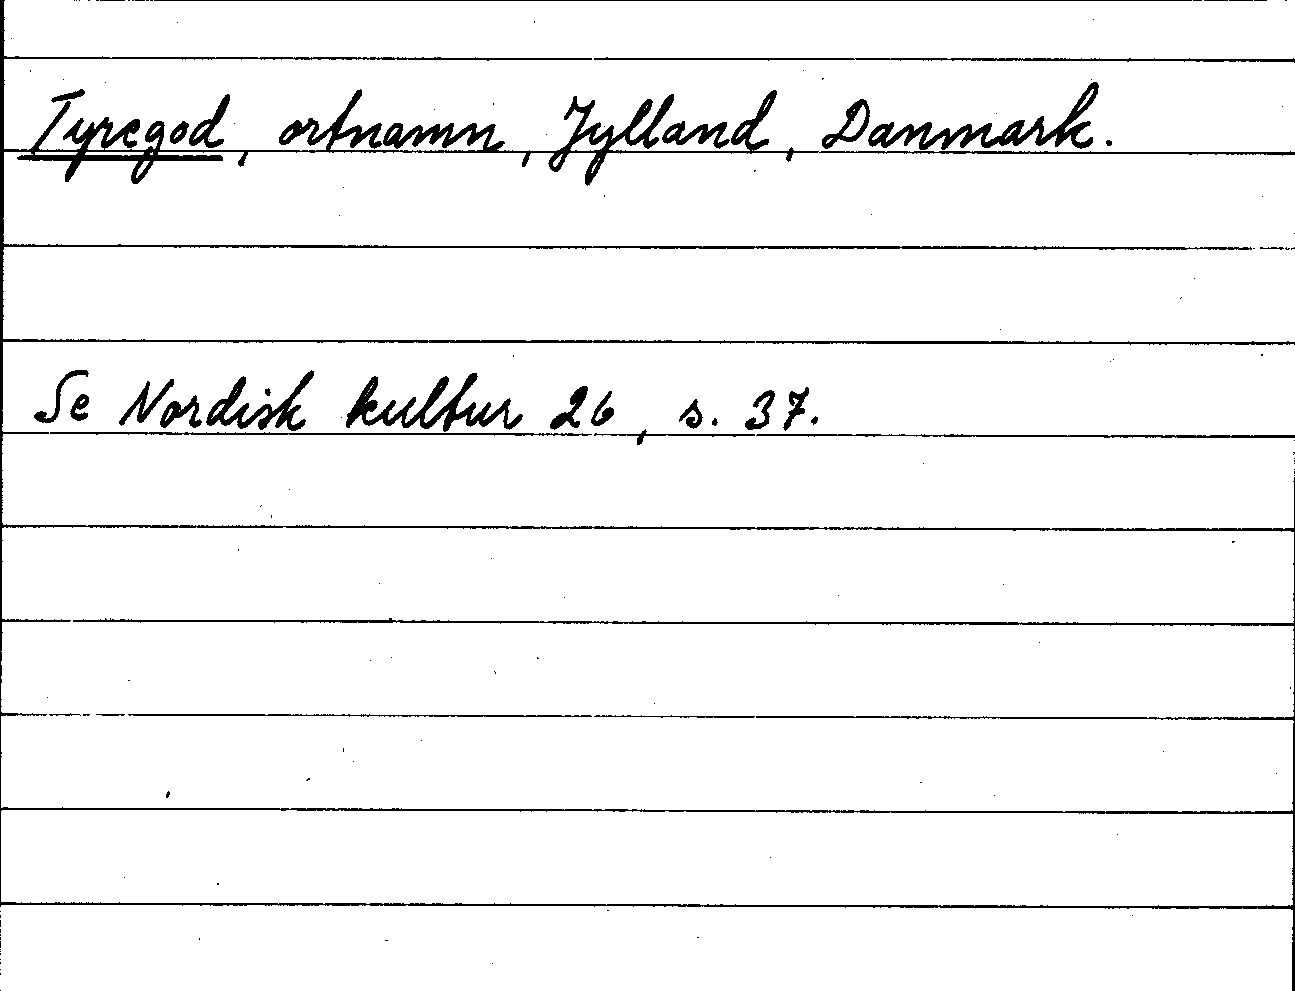 Tyregod, ortnamn, Jylland, Danmark.
Se Nordisk kultur 26, s. 37.